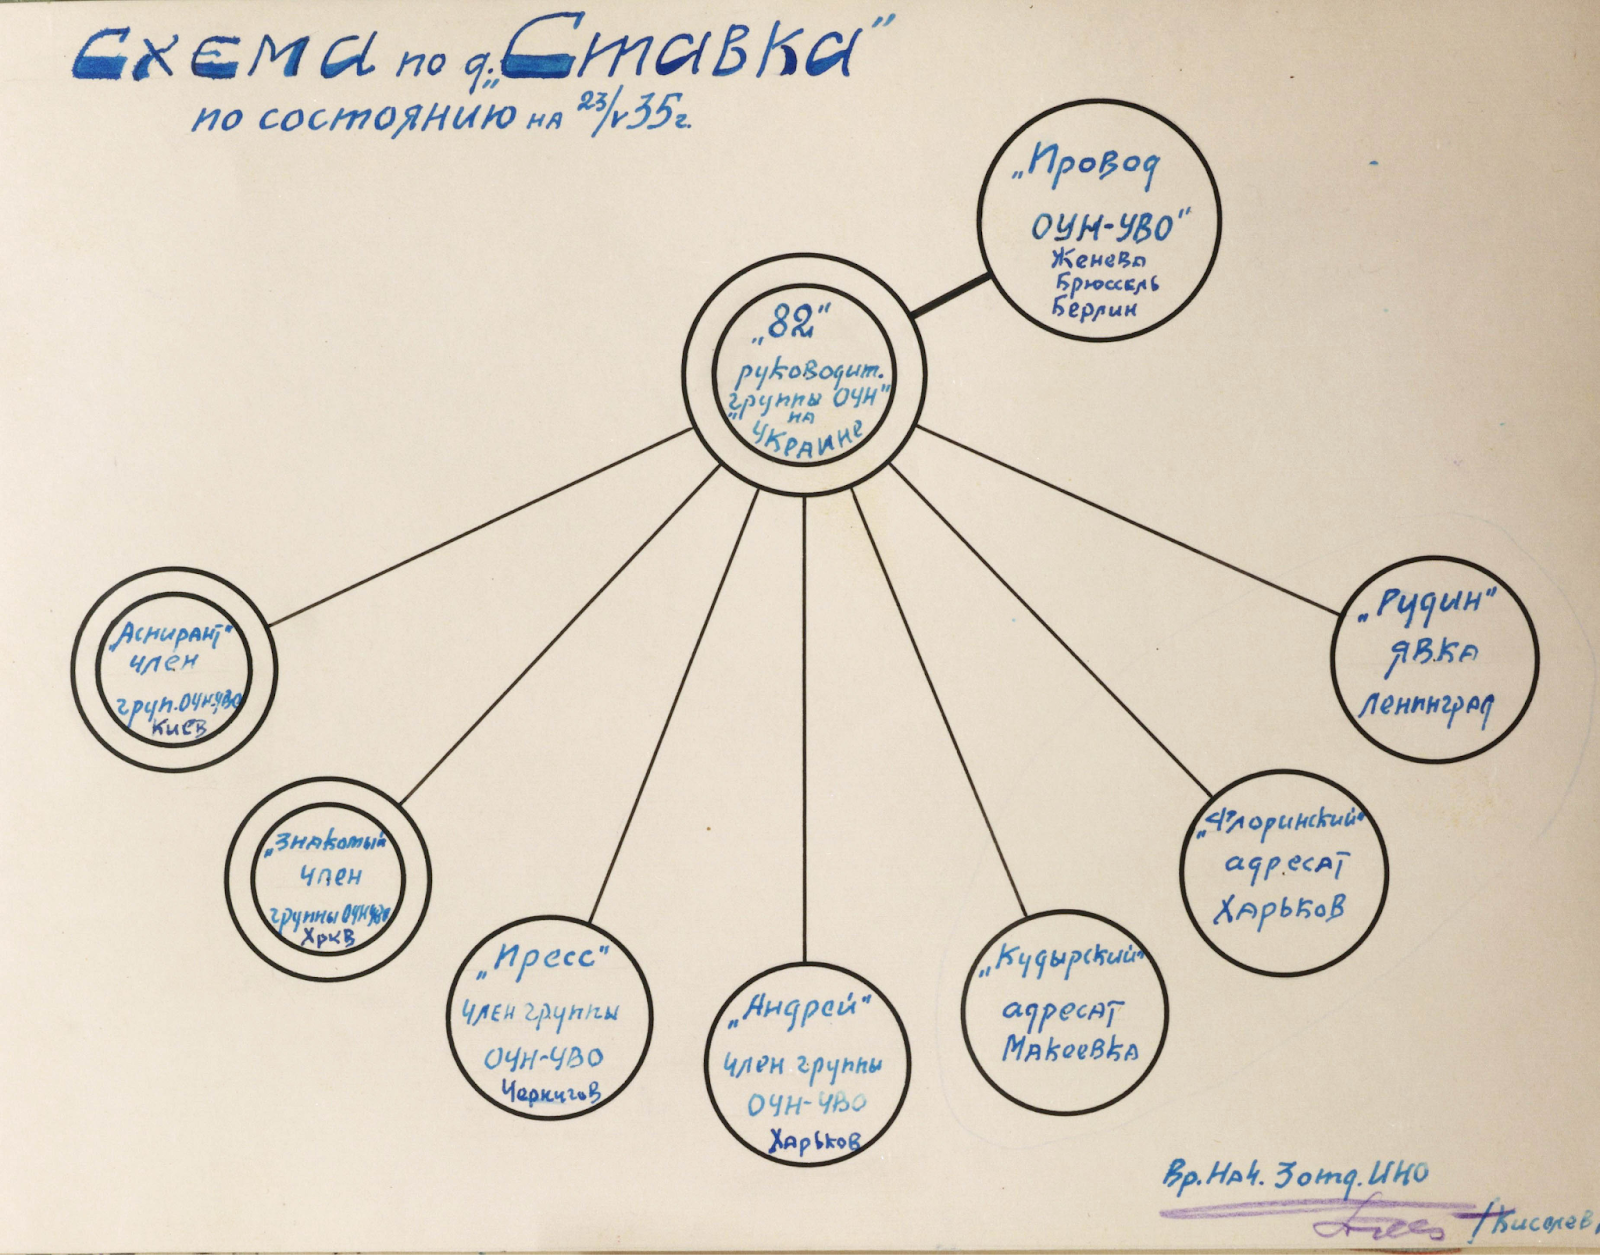 Схема по д. „Ставка"
по состоянию на 23/V 35 г.
„Провод
ОУН-УВО"
Женева
Брюссель
Берлин
„82"
руководит.
„группы ОУН"
на
Украине
„Аспирант"
член
груп. ОУН-УВО
Киев
„Знакомый"
член
группы ОУН-УВО
Хркв
„Пресс"
член группы
ОУН-УВО
Чернигов
„Андрей"
член группы
ОУН-УВО
Харьков
„Кудырский"
адресат
Макеевка
„Флоринский"
адресат
Харьков
„Рудин"
явка
Ленинград
Вр. Нач. 3 отд. ИНО